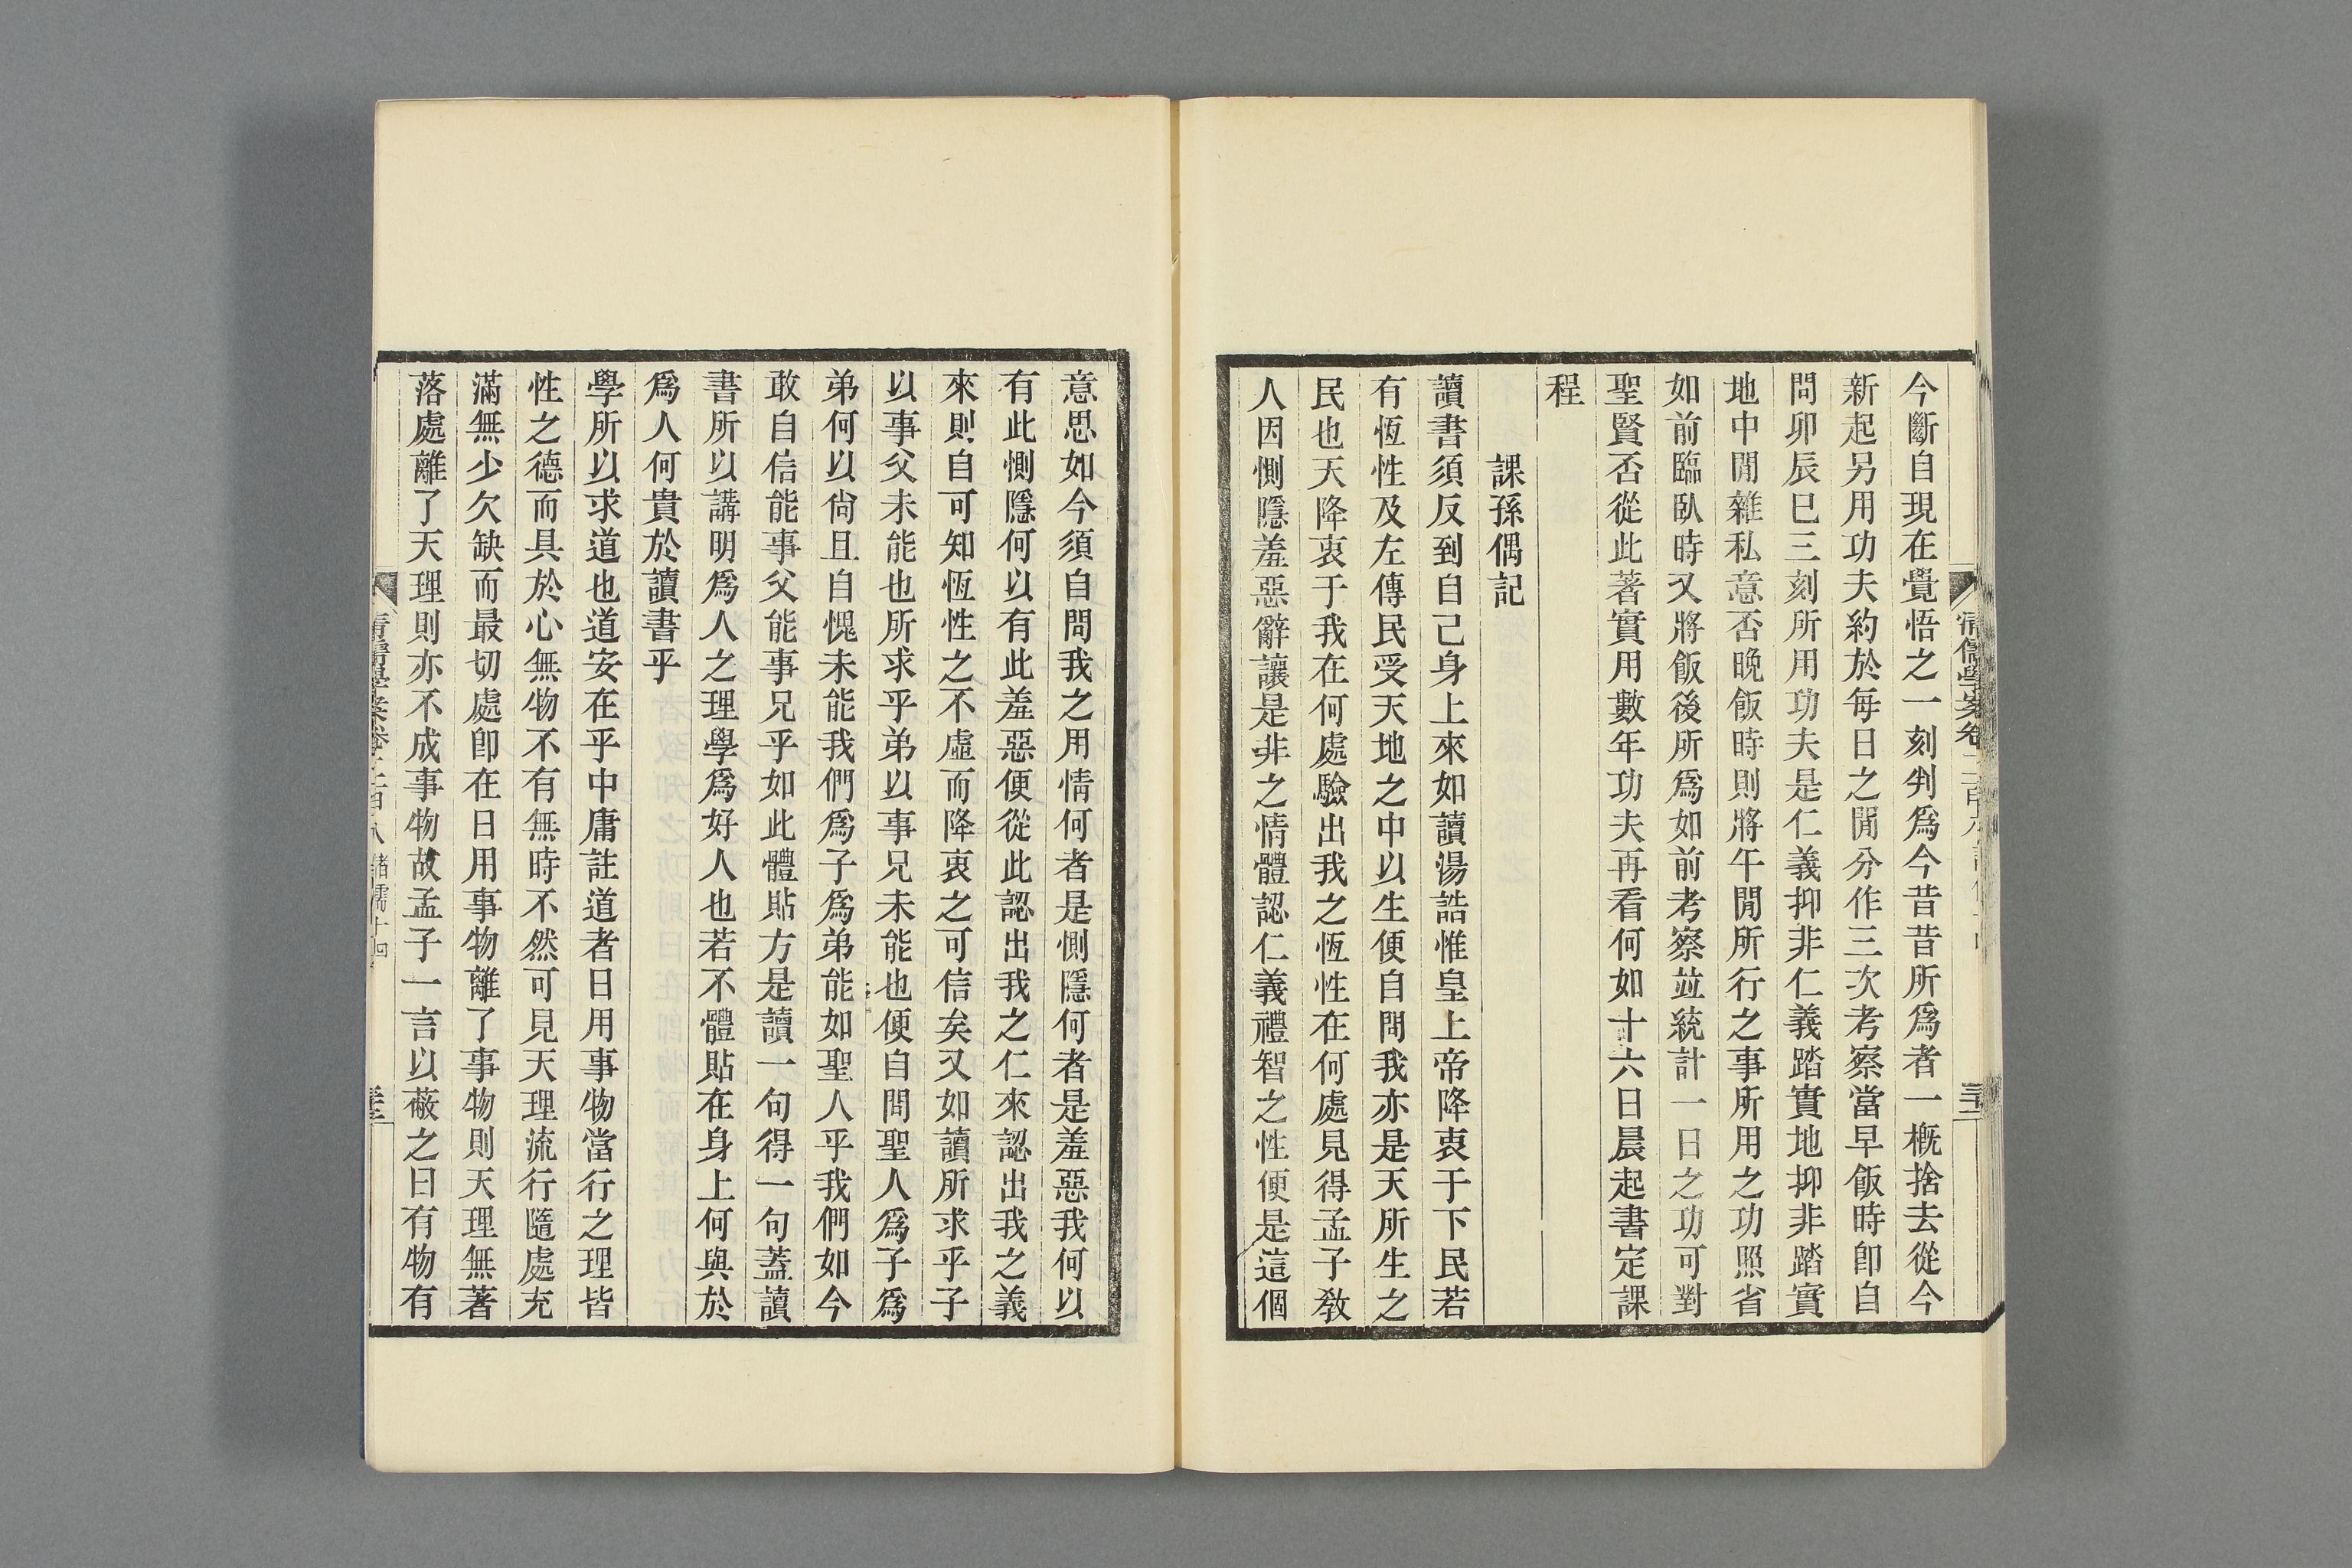 今斷自現在覺悟之一刻判爲今昔昔所爲者一槪捨去從今
新起另用功夫約於每日之閒分作三次考察當早飯時卽自
問卯辰巳三刻所用功夫是仁義抑非仁義踏實地抑非踏實
地中閒雜私意否晚飯時則將午閒所行之事所用之功照省
如前臨臥時又將飯後所爲如前考察竝統計一日之功可對
聖賢否從此著實用數年功夫再看何如十六日晨起書定課
程
課孫偶記
讀書須反到自己身上來如讀湯誥惟皇上帝降衷于下民若
有恆性及左傳民受天地之中以生便自問我亦是天所生之
民也天降衷于我在何處驗出我之恆性在何處見得孟子敎
人因惻隱羞惡辭讓是非之情體認仁義禮智之性便是這個
意思如今須自問我之用情何者是惻隱何者是羞惡我何以
有此惻隱何以有此羞惡便從此認出我之仁來認出我之義
來則自可知恆性之不虛而降衷之可信矣又如讀所求乎子
以事父未能也所求乎弟以事兄未能也便自問聖人爲子爲
弟何以尙且自愧未能我們爲子爲弟能如聖人乎我們如今
敢自信能事父能事兄乎如此體貼方是讀一句得一句蓋讀
書所以講明爲人之理學爲好人也若不體貼在身上何與於
爲人何貴於讀書乎
學所以求道也道安在乎中庸註道者日用事物當行之理皆
性之德而具於心無物不有無時不然可見天理流行隨處充
滿無少欠缺而最切處卽在日用事物離了事物則天理無著
落處離了天理則亦不成事物故孟子一言以蔽之曰有物有